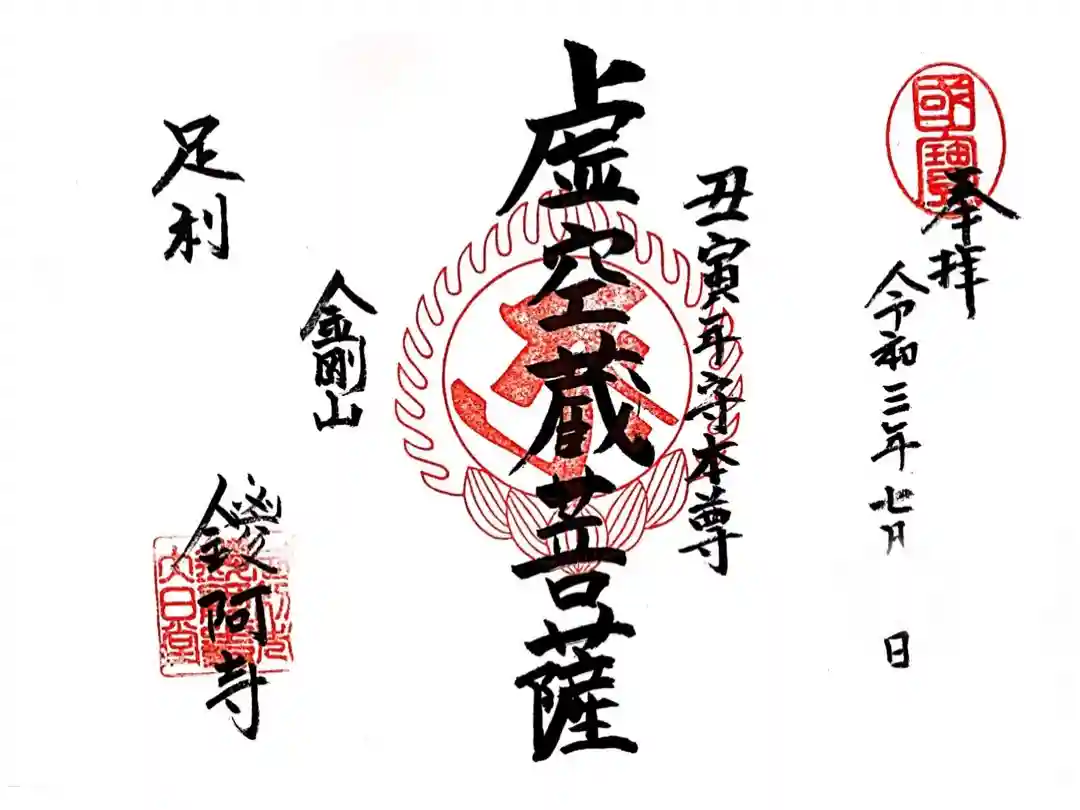 國寶
奉拝
令和三年七月 日
丑寅年守本尊
虚空蔵菩薩
金剛山
足利
鑁阿寺
大日堂